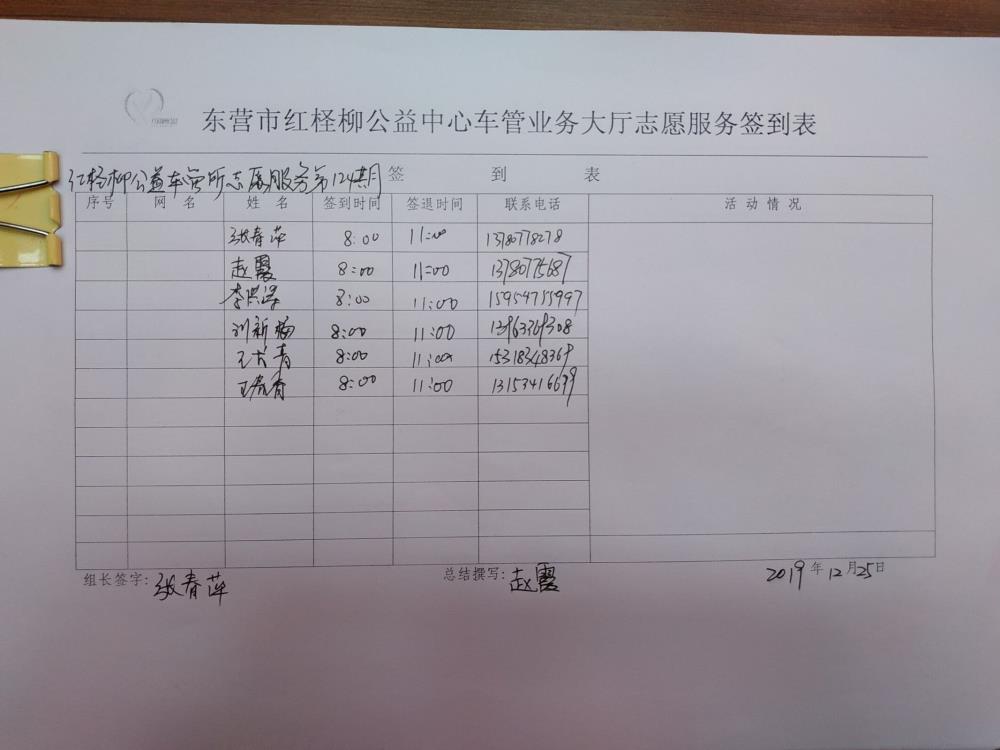 东营市红柽柳公益中心车管业务大厅志愿服务签到表
红柽柳公益车管所志愿服务第124期 签 到 表
序号 网名 姓名 签到时间 签退时间 联系电话 活动情况
张春萍 8:00 11:00 13780778278
赵霞 8:00 11:00 13780775687
李洪泽 8:00 11:00 15954755997
刘新梅 8:00 11:00 13963369308
王青 8:00 11:00 15318348369
王春香 8:00 11:00 13153416699
组长签字: 张春萍 总结撰写: 赵霞 2019年12月25日